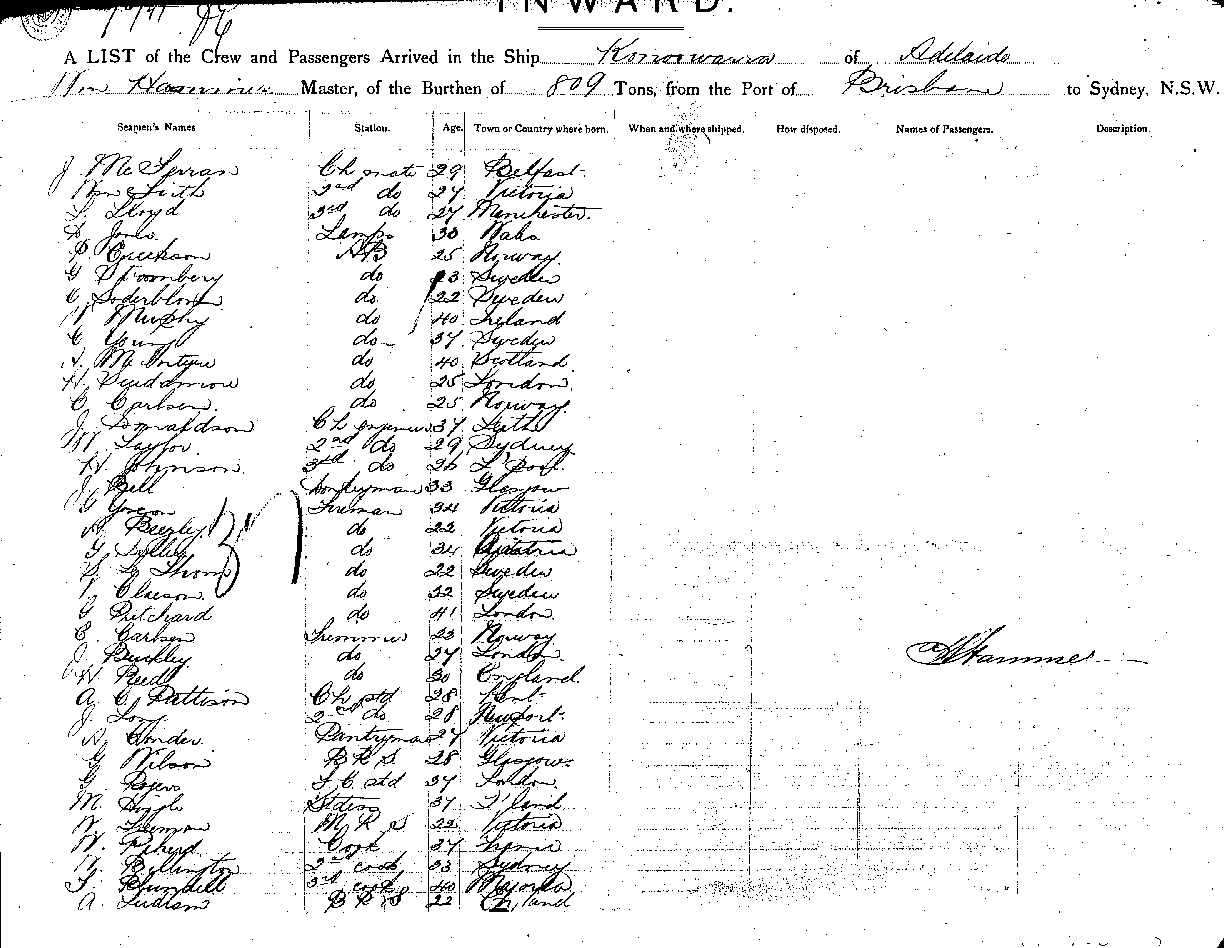 INWARD.
A LIST of the Crew and Passengers Arrived in the Ship Konoowarra of Adelaide
Master, of the Burthen of 809 Tons, from the Port of Brisbane to Sydney, N.S.W.
Seamen's Names Station. Age. Town or Country where born. When and where shipped. How disposed. Names of Passengers. Description.
J. Ch mate 29 Belfast
Wm 2nd do 27 Victoria
Lloyd 3rd do 27 Manchester
Jones Lamps 30 Wales
Erickson AB 25 Norway
G do 23 Sweden
C. Soderblom do 22 Sweden
Murphy do 40 Ireland
C Young do 37 Sweden
A. McIntyre do 40 Scotland
H. Scudamore do 25 London
C. Carlsen do 25 Norway
J. Donaldson Ch engineer 37 Leith
W. Taylor 2nd do 29 Sydney
H. Johnson 3rd do 26 L'pool
J. Bell Donkeyman 33 Glasgow
G Fireman 34 Victoria
A. Beezley do 22 Victoria
do 34 Austria
do 22 Sweden
Claeson do 32 Sweden
G Pritchard do 41 London
C. Carlsen Trimmer 23 Norway
J. Buckley do 27 London
H. Reed do 30 England
A. C. Pattison Ch std 28 Kent
J. Long 2nd do 28 Newport
A. Pantryman 27 Victoria
G Wilson B R S 28 Glasgow
G Rogers F C std 37 London
M. Stdess 37
W. M R S 22 Victoria
W. Cook 37
W. Bullington 2nd cook 33 Sydney
T. Blundell 3rd cook 40
A. Ludlam B R S 22